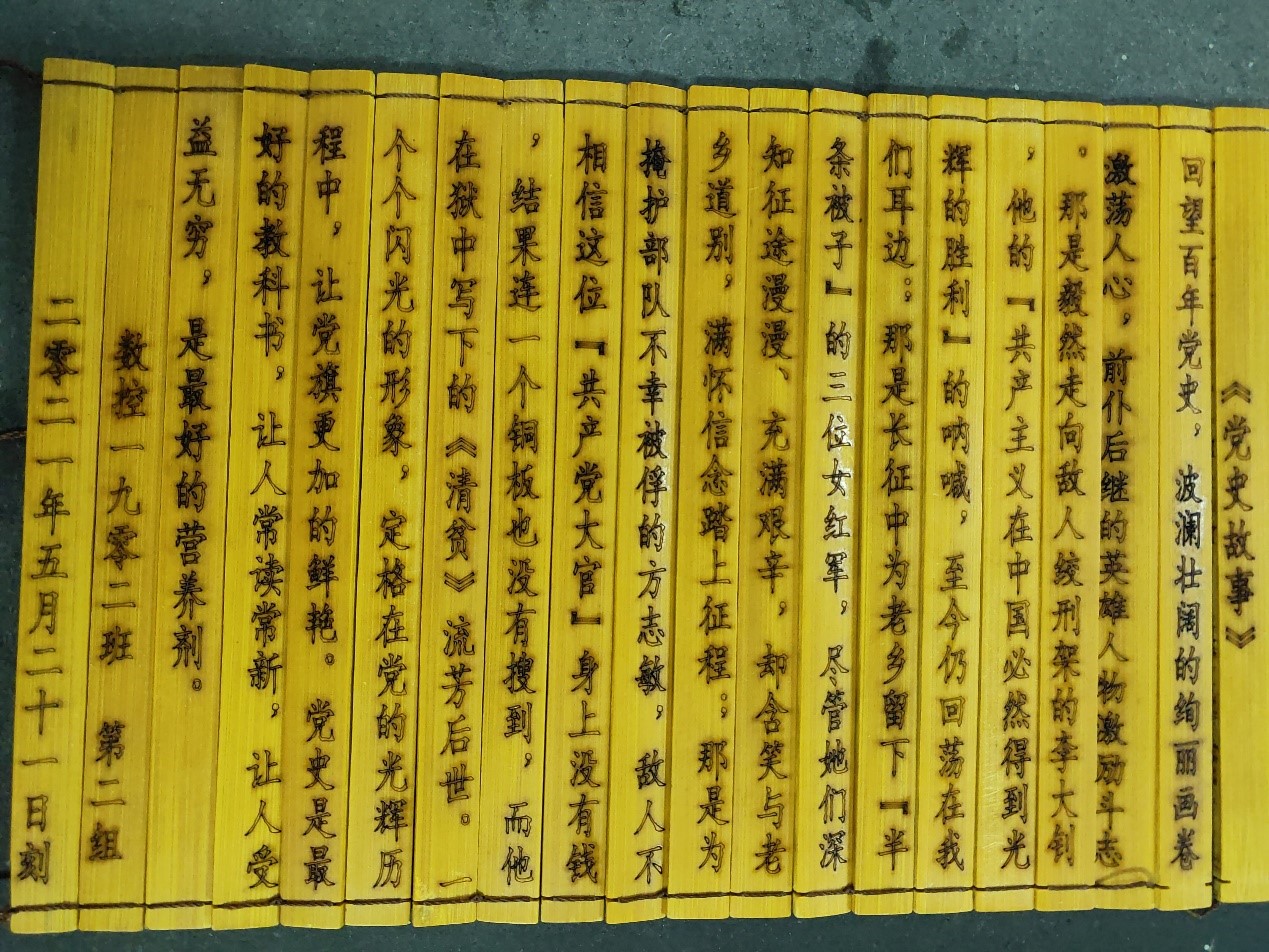 《党史故事》
回望百年党史，波澜壮阔的绚丽画卷
激荡人心，前仆后继的英雄人物激励斗志
。那是毅然走向敌人绞刑架的李大钊
，他的『共产主义在中国必然得到光
辉的胜利』的呐喊，至今仍回荡在我
们耳边；那是长征中为老乡留下『半
条被子』的三位女红军，尽管她们深
知征途漫漫、充满艰辛，却含笑与老
乡道别，满怀信念踏上征程；那是为
掩护部队不幸被俘的方志敏，敌人不
相信这位『共产党大官』身上没有钱
，结果连一个铜板也没有搜到，而他
在狱中写下的《清贫》流芳后世。一
个个闪光的形象，定格在党的光辉历
程中，让党旗更加的鲜艳。党史是最
好的教科书，让人常读常新，让人受
益无穷，是最好的营养剂。
数控一九零二班 第二组
二零二一年五月二十一日刻